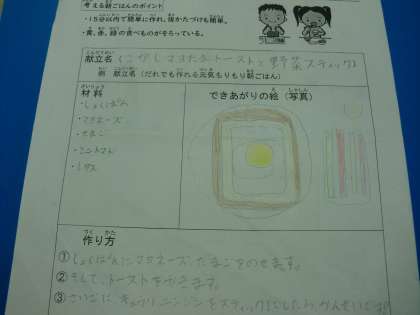 考える朝ごはんのポイント
・15分以内で簡単に作れ、後かたづけも簡単。
・黄、赤、緑の食べものがそろっている。
献立名 (こがしマヨたまトーストと野菜スティック)
例 献立名 (だれでも作れる元気もりもり朝ごはん)
材料
できあがりの絵 (写真)
・しょくぱん
・マヨネーズ
・たまご
・ミニトマト
・レタス
作り方
①しょくぱんにマヨネーズ、たまごをのせます。
②そして、トーストをやきます。
③さいごに、キュウリ、ニンジンをスティックにしたらかんせいです!